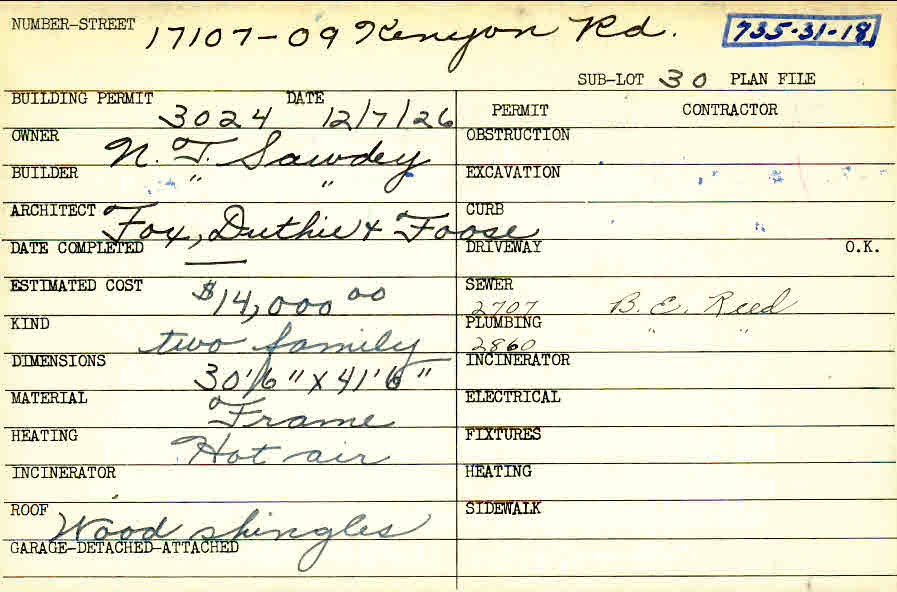 NUMBER-STREET 17107-09 Kenyon Rd. 735-31-18
SUB-LOT 30 PLAN FILE
BUILDING PERMIT 3024 DATE 12/7/26
OWNER N. T. Sawdey
BUILDER " "
ARCHITECT Fox, Duthie & Foose
DATE COMPLETED —
ESTIMATED COST $14,000 00
KIND two family
DIMENSIONS 30'6" X 41'6"
MATERIAL Frame
HEATING Hot air
INCINERATOR
ROOF Wood shingles
GARAGE-DETACHED-ATTACHED
PERMIT CONTRACTOR
OBSTRUCTION
EXCAVATION
CURB
DRIVEWAY O.K.
SEWER
2707 B. E. Reed
PLUMBING " "
2860
INCINERATOR
ELECTRICAL
FIXTURES
HEATING
SIDEWALK